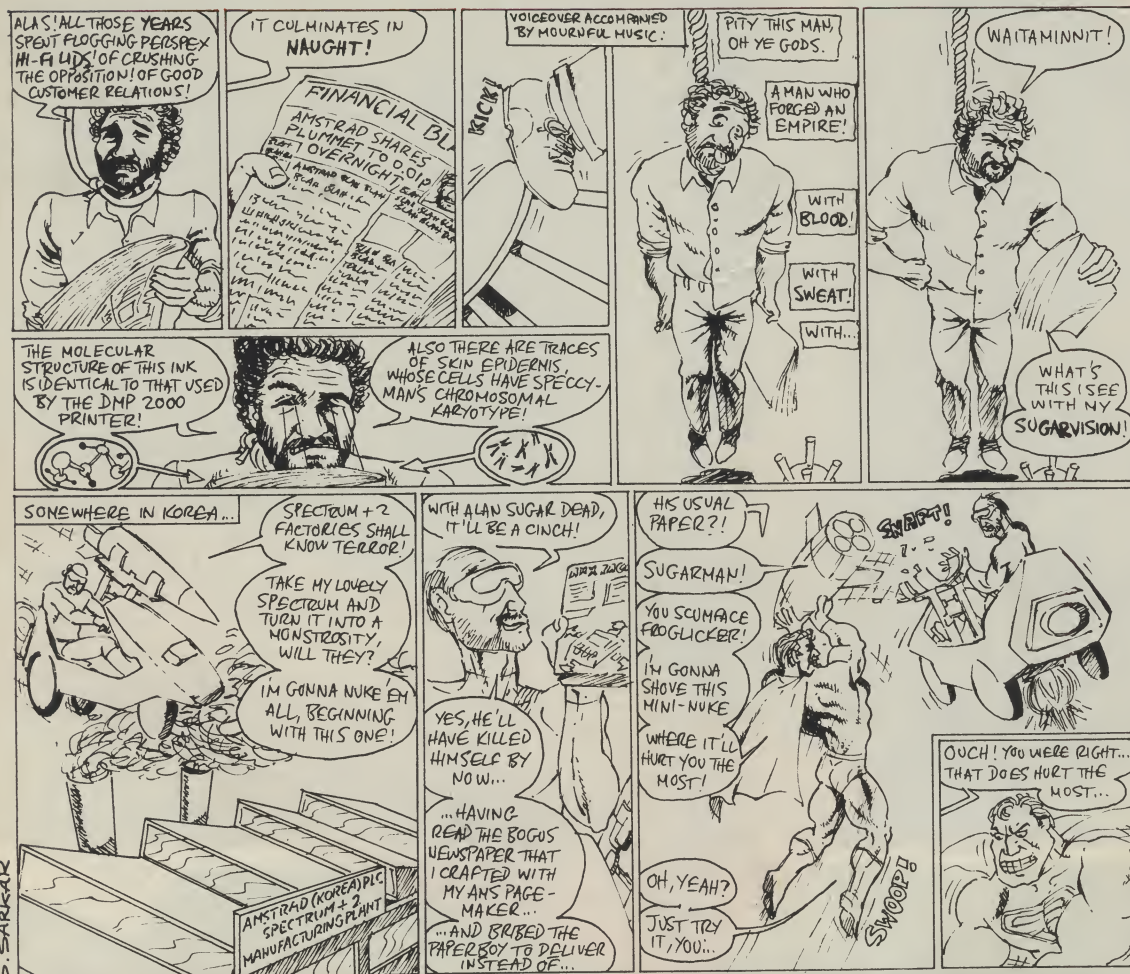 ALAS! ALL THOSE YEARS
SPENT FLOGGING PERSPEX
HI-FI LIDS! OF CRUSHING
THE OPPOSITION! OF GOOD
CUSTOMER RELATIONS!
IT CULMINATES IN
NAUGHT!
FINANCIAL BLA
AMSTRAD SHARES
PLUMMET TO 0.01P
OVERNIGHT
VOICEOVER ACCOMPANIED
BY MOURNFUL MUSIC:
KICK!
PITY THIS MAN,
OH YE GODS.
A MAN WHO
FORGED AN
EMPIRE!
WITH
BLOOD!
WITH
SWEAT!
WITH...
WAITAMINNIT!
WHAT'S
THIS I SEE
WITH MY
SUGARVISION!
THE MOLECULAR
STRUCTURE OF THIS INK
IS IDENTICAL TO THAT USED
BY THE DMP 2000
PRINTER!
ALSO THERE ARE TRACES
OF SKIN EPIDERMIS,
WHOSE CELLS HAVE SPECCY-
MAN'S CHROMOSOMAL
KARYOTYPE!
SOMEWHERE IN KOREA...
SPECTRUM +2
FACTORIES SHALL
KNOW TERROR!
TAKE MY LOVELY
SPECTRUM AND
TURN IT INTO A
MONSTROSITY,
WILL THEY?
I'M GONNA NUKE 'EM
ALL, BEGINNING
WITH THIS ONE!
AMSTRAD (KOREA) PLC
SPECTRUM +2
MANUFACTURING PLANT
WITH ALAN SUGAR DEAD,
IT'LL BE A CINCH!
YES, HE'LL
HAVE KILLED
HIMSELF BY
NOW...
...HAVING
READ THE BOGUS
NEWSPAPER THAT
I CRAFTED WITH
MY AMS PAGE-
MAKER...
...AND BRIBED THE
PAPERBOY TO DELIVER
INSTEAD OF...
HIS USUAL
PAPER?!
SUGARMAN!
YOU SCUMFACE
FROGLICKER!
I'M GONNA
SHOVE THIS
MINI-NUKE
WHERE IT'LL
HURT YOU THE
MOST!
OH, YEAH?
JUST TRY
IT, YOU...
SWOOP!!
OUCH! YOU WERE RIGHT...
THAT DOES HURT THE
MOST...
P. SARKAR